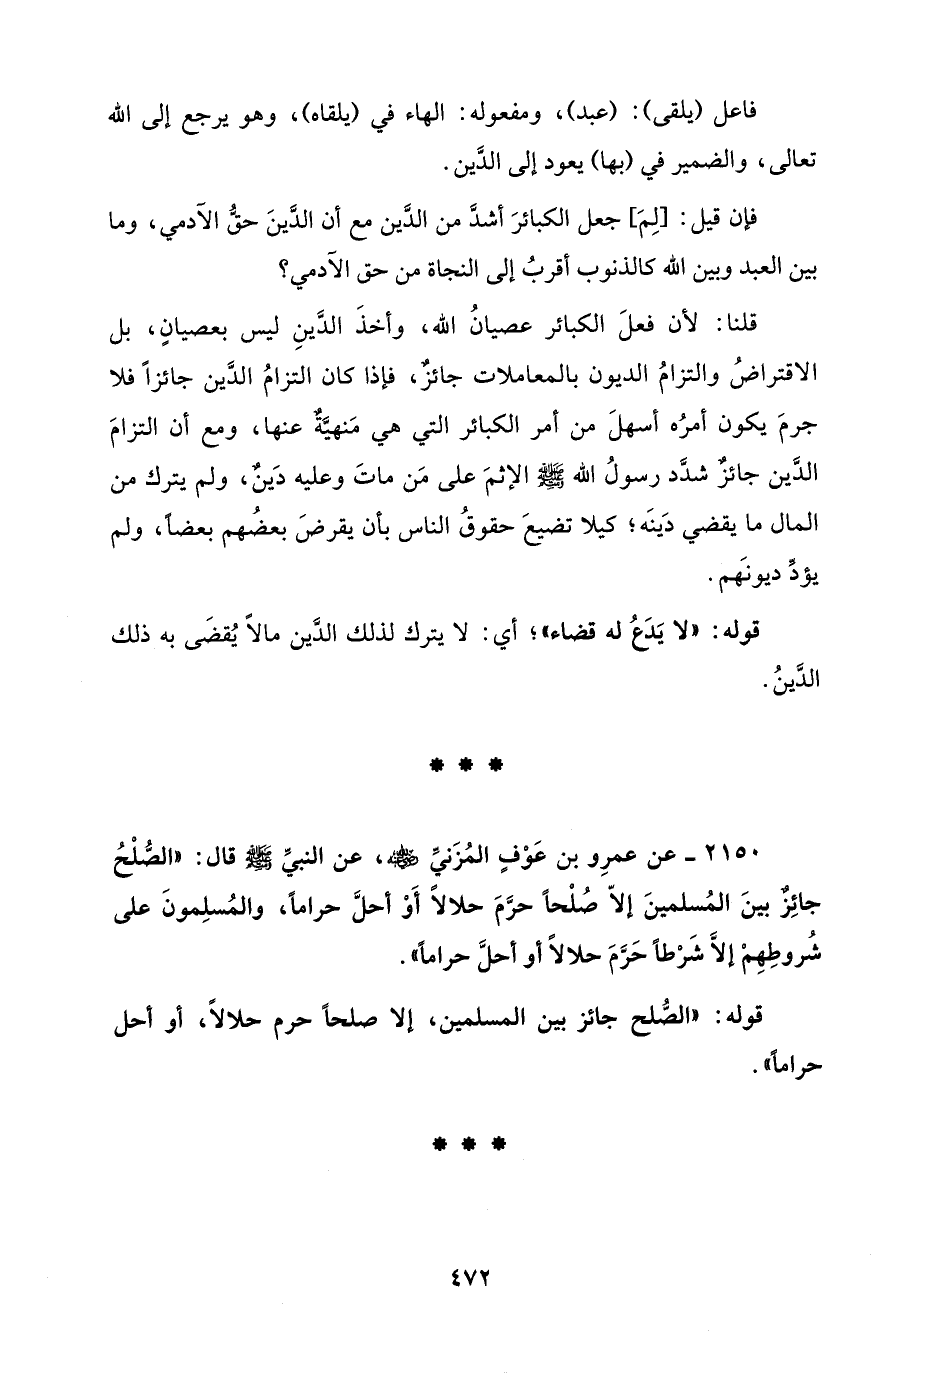 فاعل (يلقى): (عبد)، ومفعوله: الهاء في (يلقاه)، وهو يرجع إلى الله
تعالى، والضمير في (بها) يعود إلى الدَّين.
فإن قيل: [لِمَ] جعل الكبائرَ أشدَّ من الدَّين مع أن الدَّينَ حقُّ الآدمي، وما
بين العبد وبين الله كالذنوب أقربُ إلى النجاة من حق الآدمي؟
قلنا: لأن فعلَ الكبائر عصيانُ الله، وأخذَ الدَّينِ ليس بعصيانٍ، بل
الاقتراضُ والتزامُ الديون بالمعاملات جائزٌ، فإذا كان التزامُ الدَّين جائزاً فلا
جرمَ يكون أمرُه أسهلَ من أمر الكبائر التي هي مَنهيَّةٌ عنها، ومع أن التزامَ
الدَّين جائزٌ شدَّد رسولُ الله ﷺ الإثمَ على مَن ماتَ وعليه دَينٌ، ولم يترك من
المال ما يقضي دَينَه؛ كيلا تضيعَ حقوقُ الناس بأن يقرضَ بعضُهم بعضاً، ولم
يؤدِّ ديونَهم.
قوله: «لا يَدَعُ له قضاء»؛ أي: لا يترك لذلك الدَّين مالاً يُقضَى به ذلك
الدَّينُ.
* * *
٢١٥٠ - عن عمرِو بن عَوْفٍ المُزَنيِّ رضي الله عنه، عن النبيِّ ﷺ قال: «الصُّلْحُ
جائِزٌ بينَ المُسلمينَ إلاّ صُلْحاً حرَّمَ حلالاً أَوْ أحلَّ حراماً، والمُسلِمونَ على
شُروطِهِمْ إلاَّ شَرْطاً حَرَّمَ حلالاً أو أحلَّ حراماً».
قوله: «الصُّلح جائز بين المسلمين، إلا صلحاً حرم حلالاً، أو أحل
حراماً».
* * *
٤٧٢